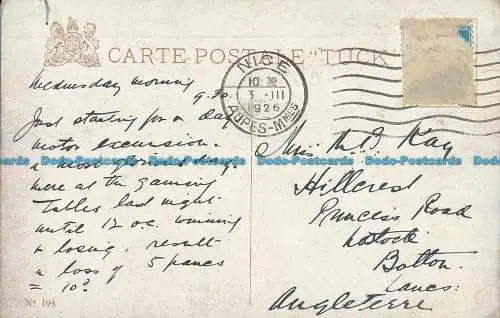 CARTE POSTALE "TUCK"
NICE
10 30
3 - III
1926
ALPES-MMES
Wednesday morning
9.30.
Just starting for a day
motor excursion.
a most glorious day.
were at the gaming
tables last night
until 12 o.c. winning
& losing, result
a loss of 5 francs
= 10D
No 104
Miss M. J. Kay
Hillcrest
Princess Road
Lostock
Bolton.
Lancs:
Angleterre
Dodo-Postcards Dodo-Postcards Dodo-Postcards Dodo-Postcards Dodo-Postcards